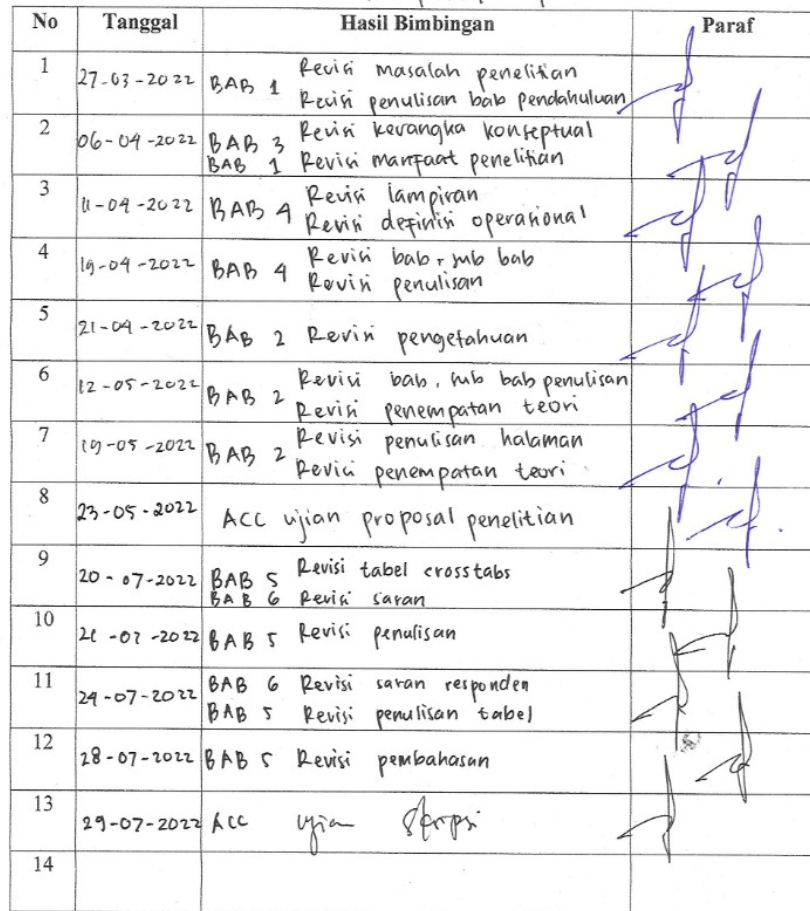 No Tanggal Hasil Bimbingan Paraf
1 27-03-2022 BAB 1 Revisi masalah penelitian
Revisi penulisan bab pendahuluan
2 06-04-2022 BAB 3 Revisi kerangka konseptual
BAB 1 Revisi manfaat penelitian
3 11-04-2022 BAB 4 Revisi lampiran
Revisi definisi operasional
4 19-04-2022 BAB 4 Revisi bab, sub bab
Revisi penulisan
5 21-04-2022 BAB 2 Revisi pengetahuan
6 12-05-2022 BAB 2 Revisi bab, sub bab penulisan
Revisi penempatan teori
7 19-05-2022 BAB 2 Revisi penulisan halaman
Revisi penempatan teori
8 23-05-2022 ACC ujian proposal penelitian
9 20-07-2022 BAB 5 Revisi tabel crosstabs
BAB 6 Revisi saran
10 21-07-2022 BAB 5 Revisi penulisan
11 24-07-2022 BAB 6 Revisi saran responden
BAB 5 Revisi penulisan tabel
12 28-07-2022 BAB 5 Revisi pembahasan
13 29-07-2022 ACC ujian Skripsi
14